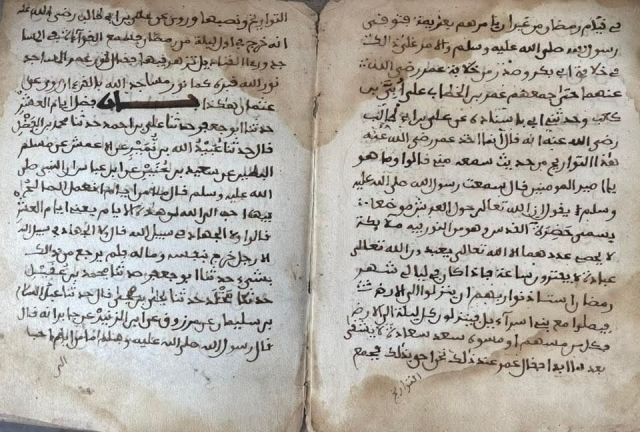 في قيام رمضان من غير ان يامرهم بعزيمة فتوفى
رسول الله صلى الله عليه وسلم والامر على ذلك
في خلافة ابي بكر وصدر من خلافة عمر رضي الله
عنهما حتى جمعهم عمر بن الخطاب على ابي بن
كعب وحدثني ابي باسناده عن علي بن ابي طالب
رضي الله عنه انه قال انما اخذ عمر رضي الله عنه
هذا التواريح من حديث سمعه مني قالوا وما هو
يا امير المومنين قال سمعت رسول الله صلى الله عليه
وسلم يقول ان الله تعالى حول العرش موضعا
يسمى حضيرة القدس وهو من النور فيه ملائكة
لا يحصى عددهم الا الله تعالى يعبدون الله تعالى
عبادة لا يفترون ساعة فاذا كان في ليالي شهر
رمضان استاذنوا ربهم ان ينزلوا الى الارض
فيصلوا مع بني ادم فينزلون كل ليلة الى الارض
فكل من مسهم او مسوه سعد سعادة لا يشقى
بعدها ابدا فقال عمر عند ذلك نحن احق بذلك فجمع
التواريح
التواريح ونصبها وروي عن علي بن ابي طالب رضي الله عنه
انه خرج في اول ليلة من رمضان فسمع القراءة في المساجد
وراى القناديل تزهر فيها فقال نور الله
نور الله قبره كما نور مساجد الله بالقرءان وروي عن
عثمان هكذا فصل ايام العشر
حدثنا ابو جعفر حدثنا علي بن احمد حدثنا محمد بن الفضل
قال حدثنا عن الاعمش عن مسلم
البطين عن سعيد بن جبير عن ابن عباس ان النبي صلى
الله عليه وسلم قال ما من ايام العمل الصالح
فيها احب الى الله من هذه الايام يعني ايام العشر
قالوا ولا الجهاد في سبيل الله قال ولا الجهاد في سبيل الله
الا رجل خرج بنفسه وماله فلم يرجع من ذلك
بشيء حدثنا ابو جعفر حدثنا محمد بن عقيل
حدثنا قال حدثنا
بن سليمان عن مرزوق عن ابي الزبير عن جابر انه قال
قال رسول الله صلى الله عليه وسلم ما من ايام احب